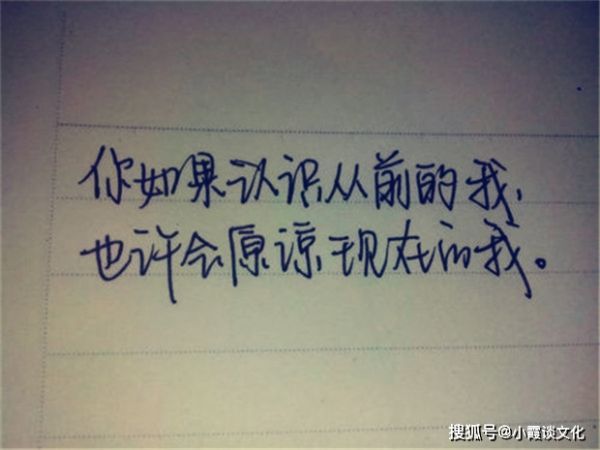 你如果认识从前的我，
也许会原谅现在的我。
搜狐号@小霞谈文化